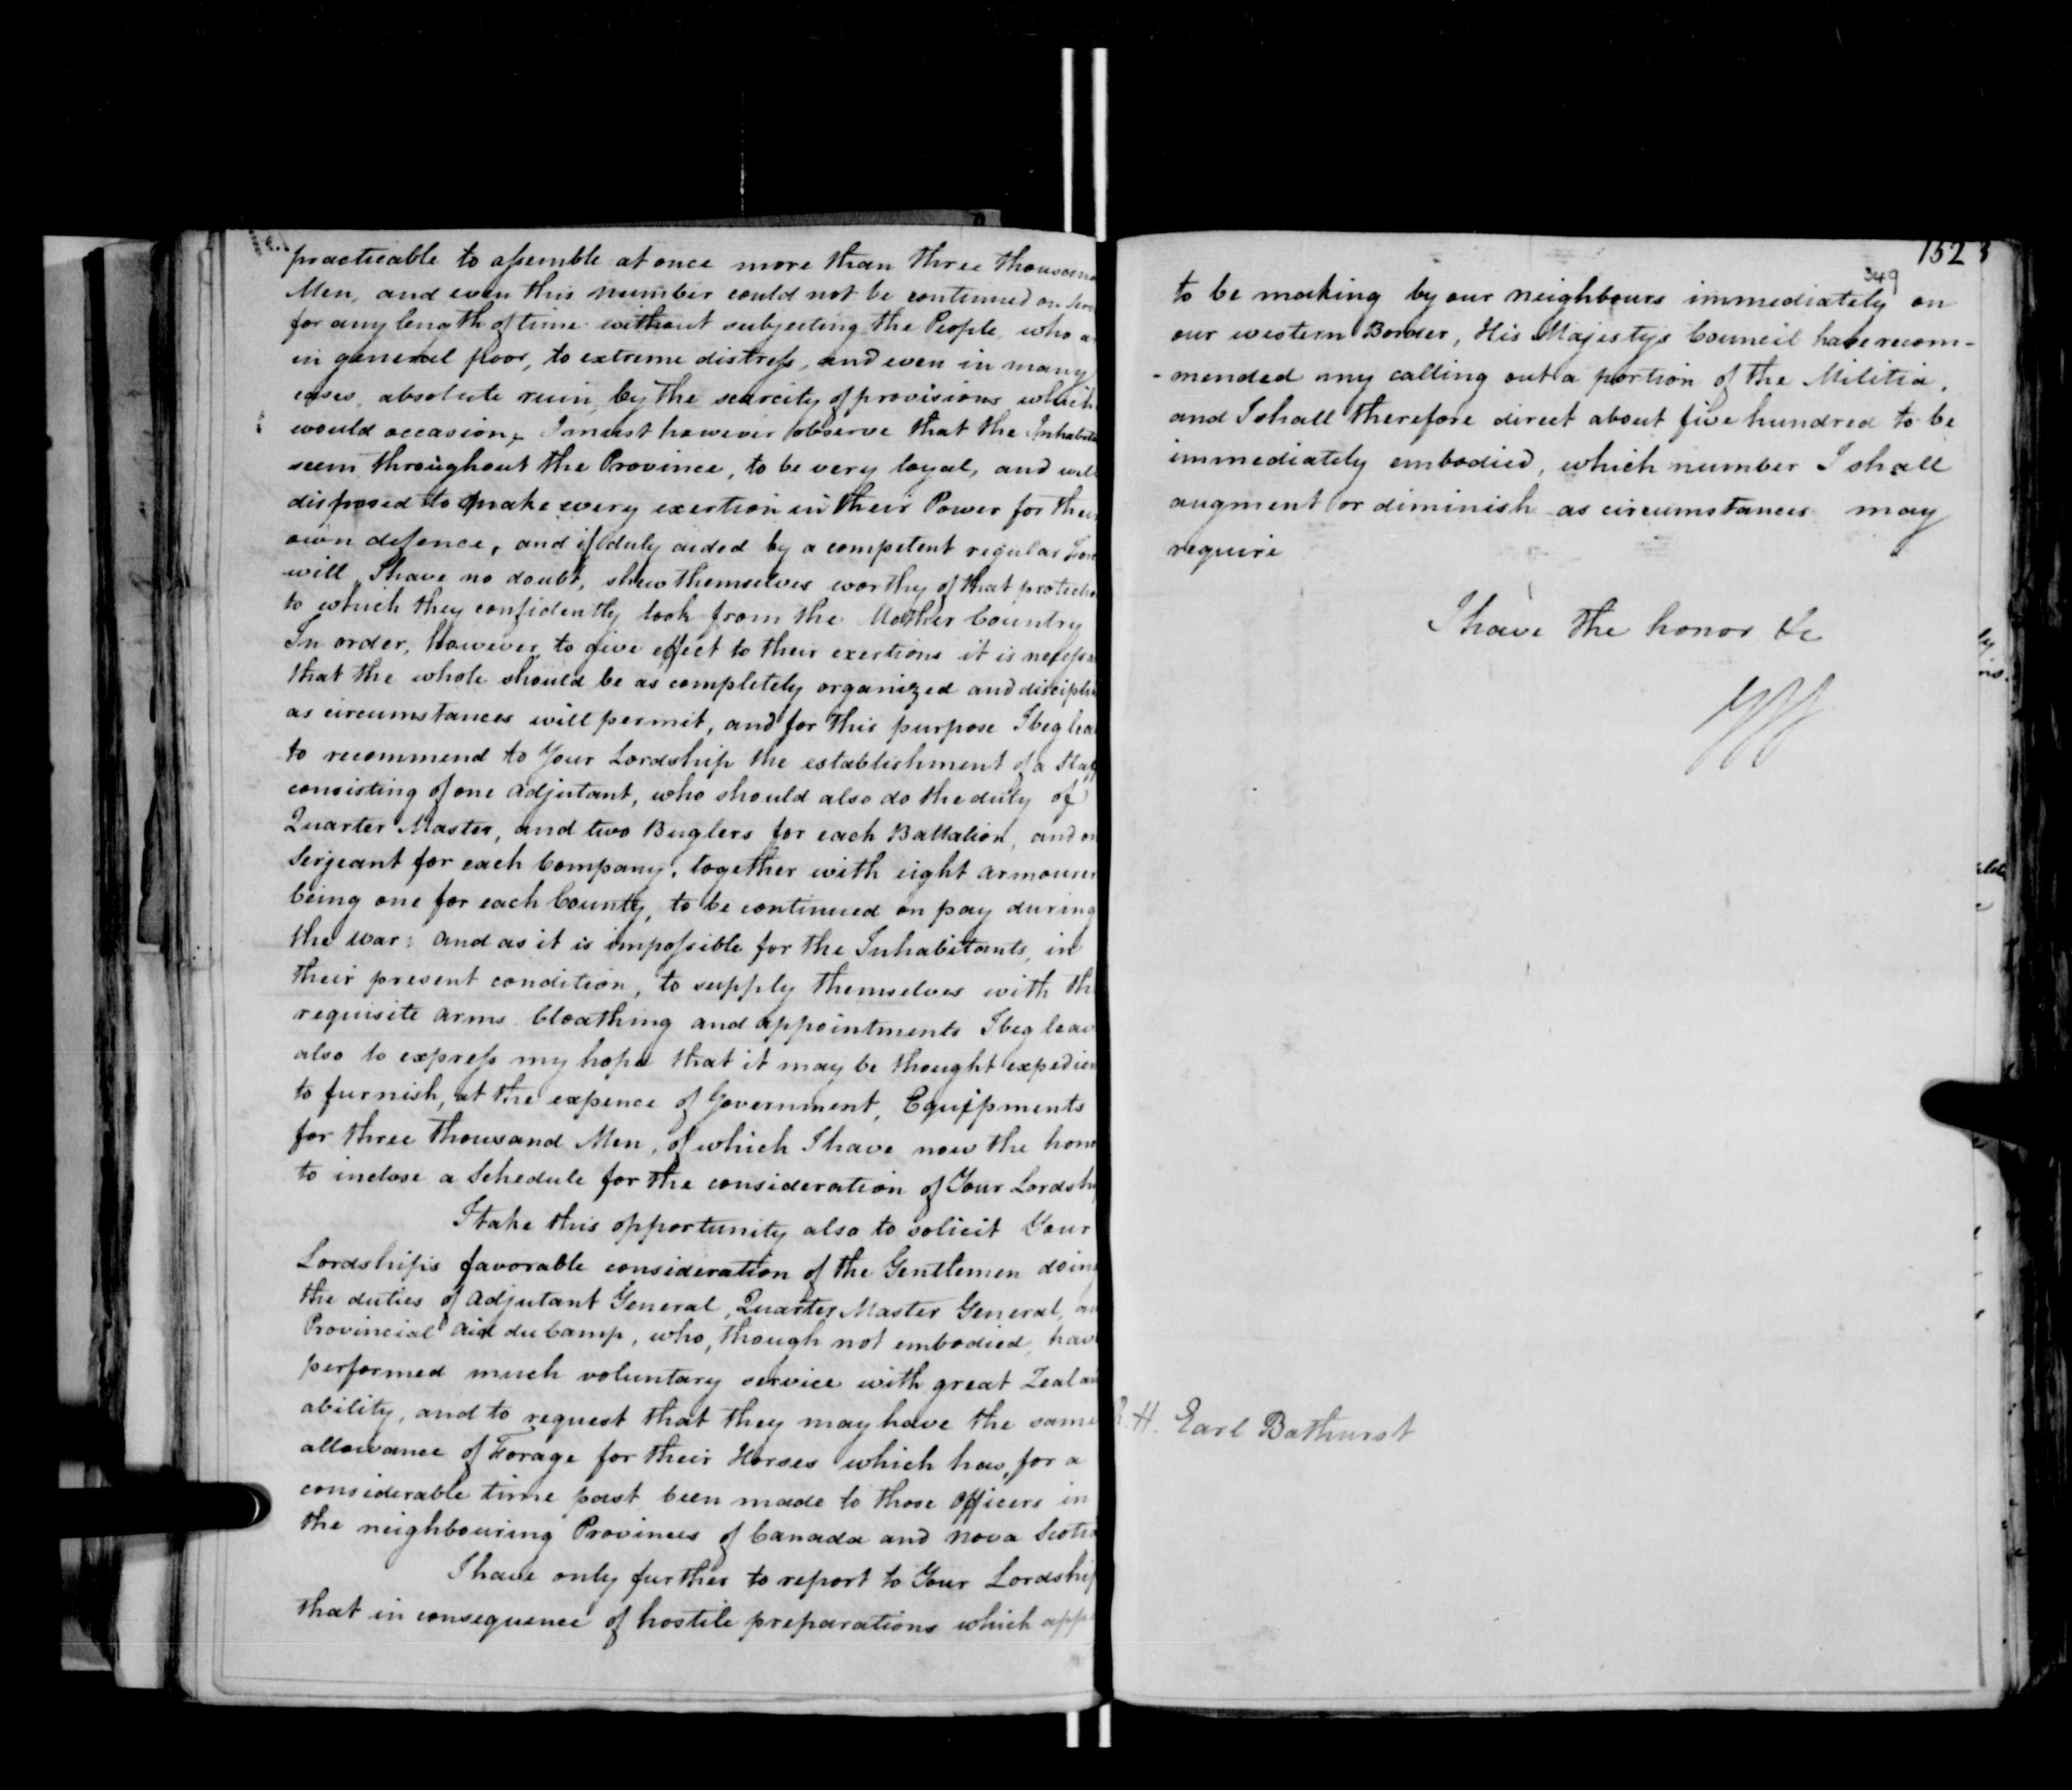 practicable to assemble at once more than three thousan
Men, and even this number could not be continued on Ser
for any length of time without subjecting the People, who a
in general poor, to extreme distress, and even in many
cases, absolute ruin, by the scarcity of provisions which
would occasion, I must however observe that the Inhabita
seem throughout the Province, to be very loyal, and well
disposed to make every exertion in their Power for their
own defence, and if duly aided by a competent regular Forc
will, I have no doubt, shew themselves worthy of that protectio
to which they confidently look from the Mother Country
In order, however, to give effect to their exertions it is necessa
that the whole should be as completely organized and disciplin
as circumstances will permit, and for this purpose I beg lea
to recommend to Your Lordship the establishment of a Staff
consisting of one adjutant, who should also do the duty of
Quarter Master, and two Buglers for each Battalion, and on
Serjeant for each Company, together with eight armourer
being one for each County, to be continued on pay during
the war: and as it is impossible for the Inhabitants, in
their present condition, to supply themselves with th
requisite arms Cloathing and appointments I beg leav
also to express my hope that it may be thought expedien
to furnish, at the expence of Government, Equippments
for three thousand Men, of which I have now the hono
to inclose a Schedule for the consideration of Your Lordsh
I take this opportunity also to solicit Your
Lordship's favorable consideration of the Gentlemen doing
the duties of adjutant General, Quarter Master General, an
Provincial aid du Camp, who, though not embodied, hav
performed much voluntary service with great Zeal an
ability, and to request that they may have the same
allowance of Forage for their Horses which has, for a
considerable time past, been made to those Officers in
the neighbouring Provinces of Canada and Nova Scotia
I have only further to report to Your Lordship
that in consequence of hostile preparations which appe
152 3
349
to be making by our neighbours immediately on
our western Border, His Majestys Council have recom-
-mended my calling out a portion of the Militia,
and I shall therefore direct about five hundred to be
immediately embodied, which number I shall
augment or diminish as circumstances may
require
I have the honor &c
H. Earl Bathurst